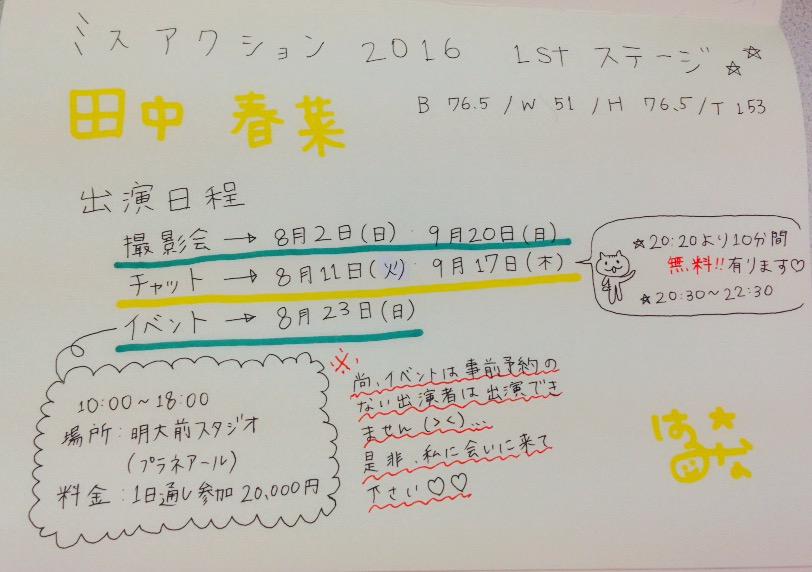 ミスアクション 2016 1st ステージ☆☆
田中 春菜
B 76.5 / W 51 / H 76.5 / T 153
出演日程
撮影会 → 8月2日(日)・9月20日(日)
チャット → 8月11日(火)・9月17日(木)
★20:20より10分間
無料!!有ります♡
★20:30〜22:30
イベント → 8月23日(日)
10:00〜18:00
場所:明大前スタジオ
(プラネアール)
料金:1日通し参加 20,000円
※
尚、イベントは事前予約の
ない出演者は出演でき
ません(><)...
是非、私に会いに来て
下さい♡♡
はる★
な